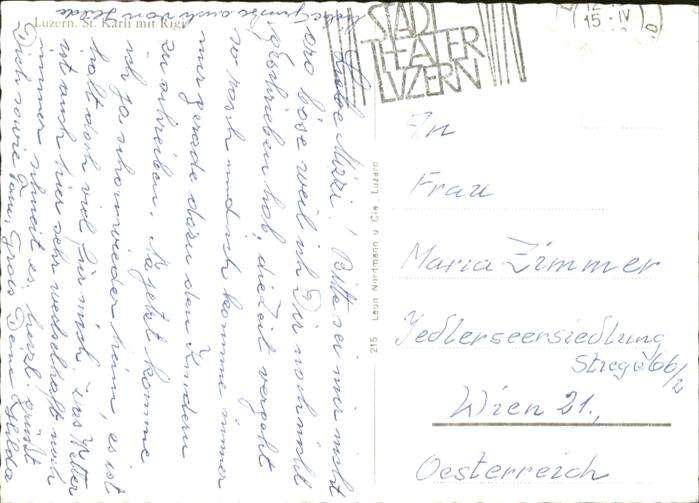 Luzern. St. Karli mit Rigi
STADT
THEATER
LUZERN
15.-IV
215 Leon Nordmann u. Cie., Luzern
An
Frau
Maria Zimmer
Jedlerseersiedlung
Stiege 66/2
Wien 21.,
Oesterreich
Liebe Mizzi! Bitte sei mir nicht
bös weil ich Dir noch nicht
geschrieben hab, die Zeit vergeht
so rasch und ich komme immer
nur gerade dazu den Kindern
zu schreiben. Na jetzt komme
ich ja schon wieder heim, es ist
halt doch viel für mich. Das Wetter
ist auch hier sehr wechselhaft noch
immer schneit es, herzl. grüßt
Dich sowie Fam.